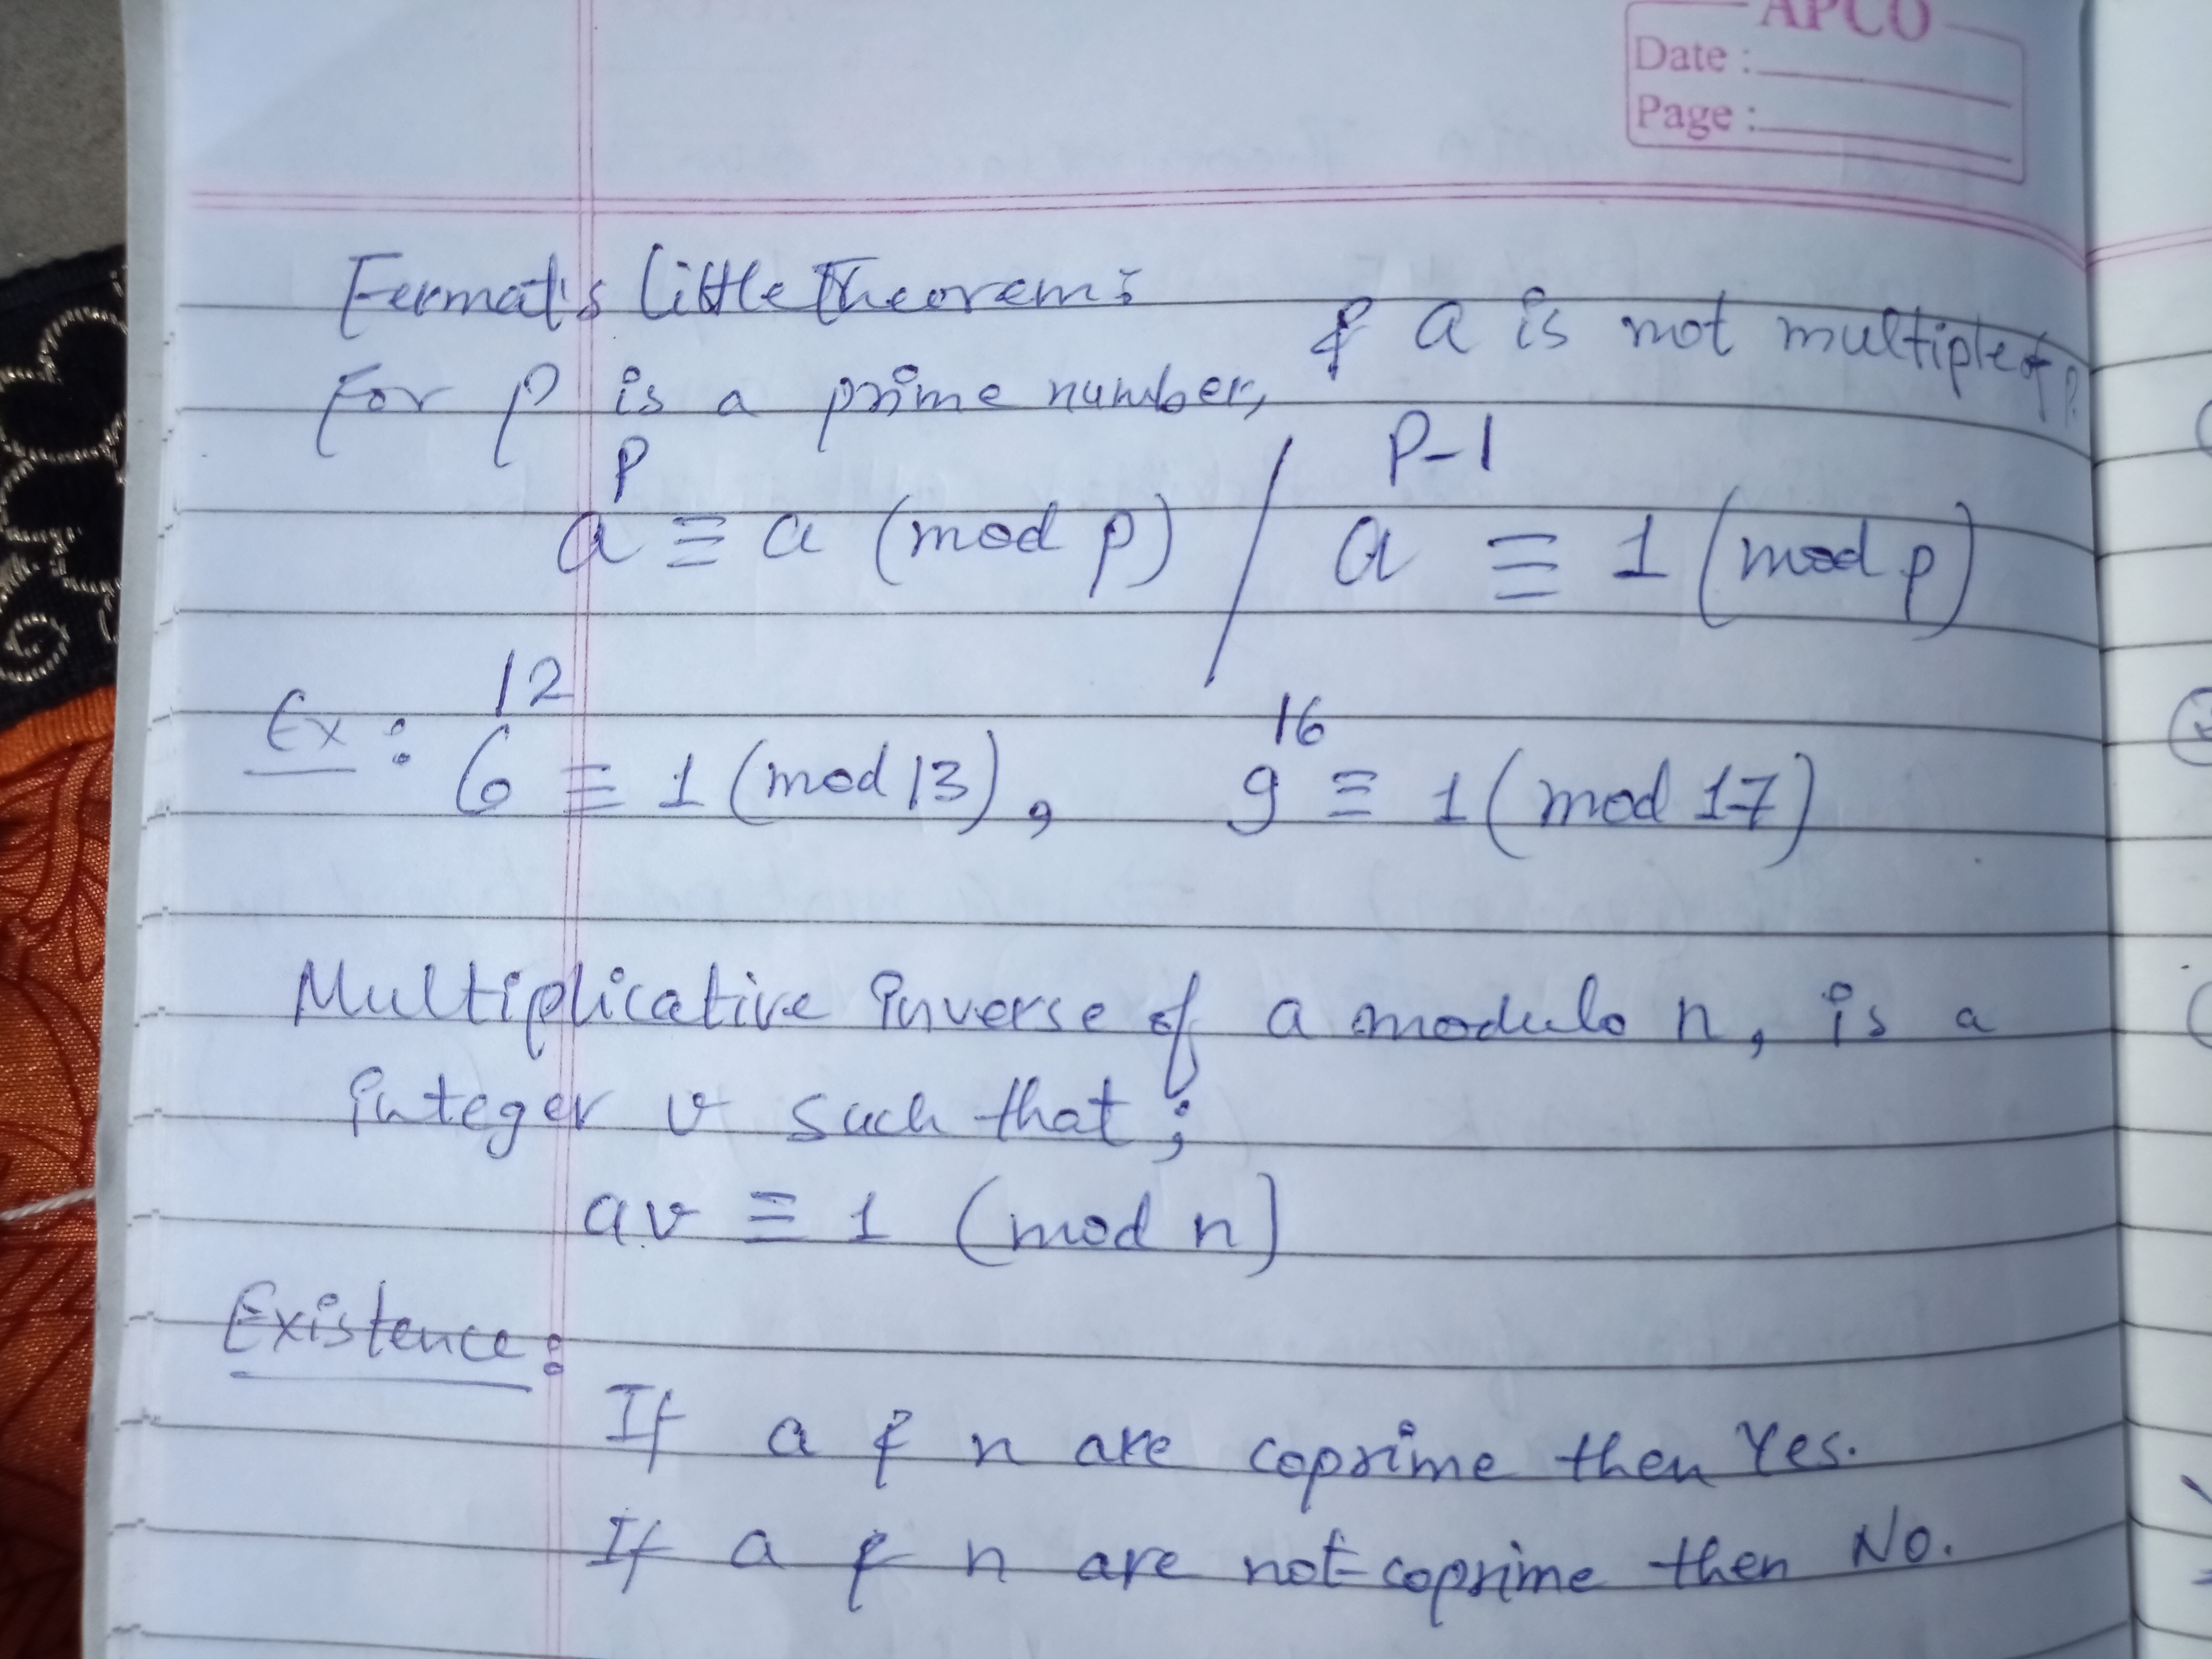 APCO
Date :
Page :
Fermat's little Theorem:
For p is a prime number, & a is not multiple of p.
a^p ≡ a (mod p) / a^(p-1) ≡ 1 (mod p)
Ex: 6^12 ≡ 1 (mod 13), 9^16 ≡ 1 (mod 17)
Multiplicative inverse of a modulo n, is a
integer v such that;
av ≡ 1 (mod n)
Existence:
If a & n are coprime then Yes.
If a & n are not coprime then No.